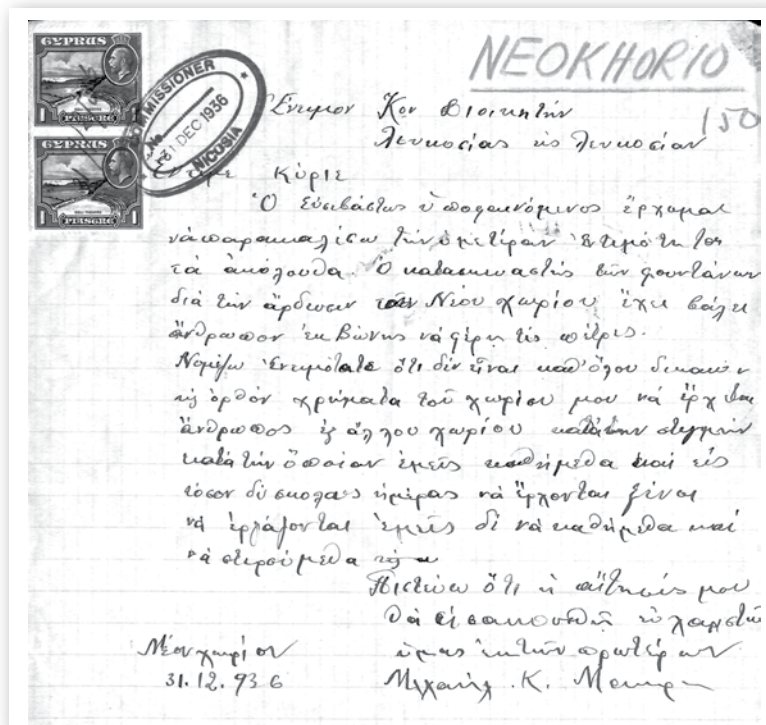 NEOKHORIO
150
CYPRUS
1 PIASTRE 1
CYPRUS
1 PIASTRE 1
COMMISSIONER
No
31 DEC 1936
NICOSIA
Έντιμον Κον Διοικητήν
Λευκοσίας εις Λευκοσίαν
Κύριε
Ὁ εὐσεβάστως ὑποφαινόμενος ἔρχομαι
νά παρακαλέσω τήν ὑμετέραν Ἐντιμότητα
τά ἀκόλουθα. Ὁ κατασκευαστής τῶν φουντάνων
διά τήν ἄρδευσιν τοῦ Νέου χωρίου ἔχει βάλει
ἄνθρωπον ἐκ Βώνης νά φέρη τις πέτρες.
Νομίζω Ἐντιμότατε ὅτι δέν εἶναι καθ' ὅλου δίκαιον
ὀρθόν χρήματα τοῦ χωρίου μου νά ἔρχεται
ἄνθρωπος ἐξ ἄλλου χωρίου κατά την στιγμήν
κατά τήν ὁποίαν ἐμεῖς καθήμεθα καί εἰς
τόσον δύσκολας ἡμέρας νά ἔρχονται ξένοι
νά ἐργάζονται ἐμεῖς δέ νά καθήμεθα καί
νά στερούμεθα
Πιστεύω ὅτι ἡ αἴτησίς μου
θά εἰσακουσθῆ εὐχαριστῶ
ὑμᾶς ἐκ τῶν προτέρων
Νέον χωρίον
31.12.936
Μιχαήλ Κ.